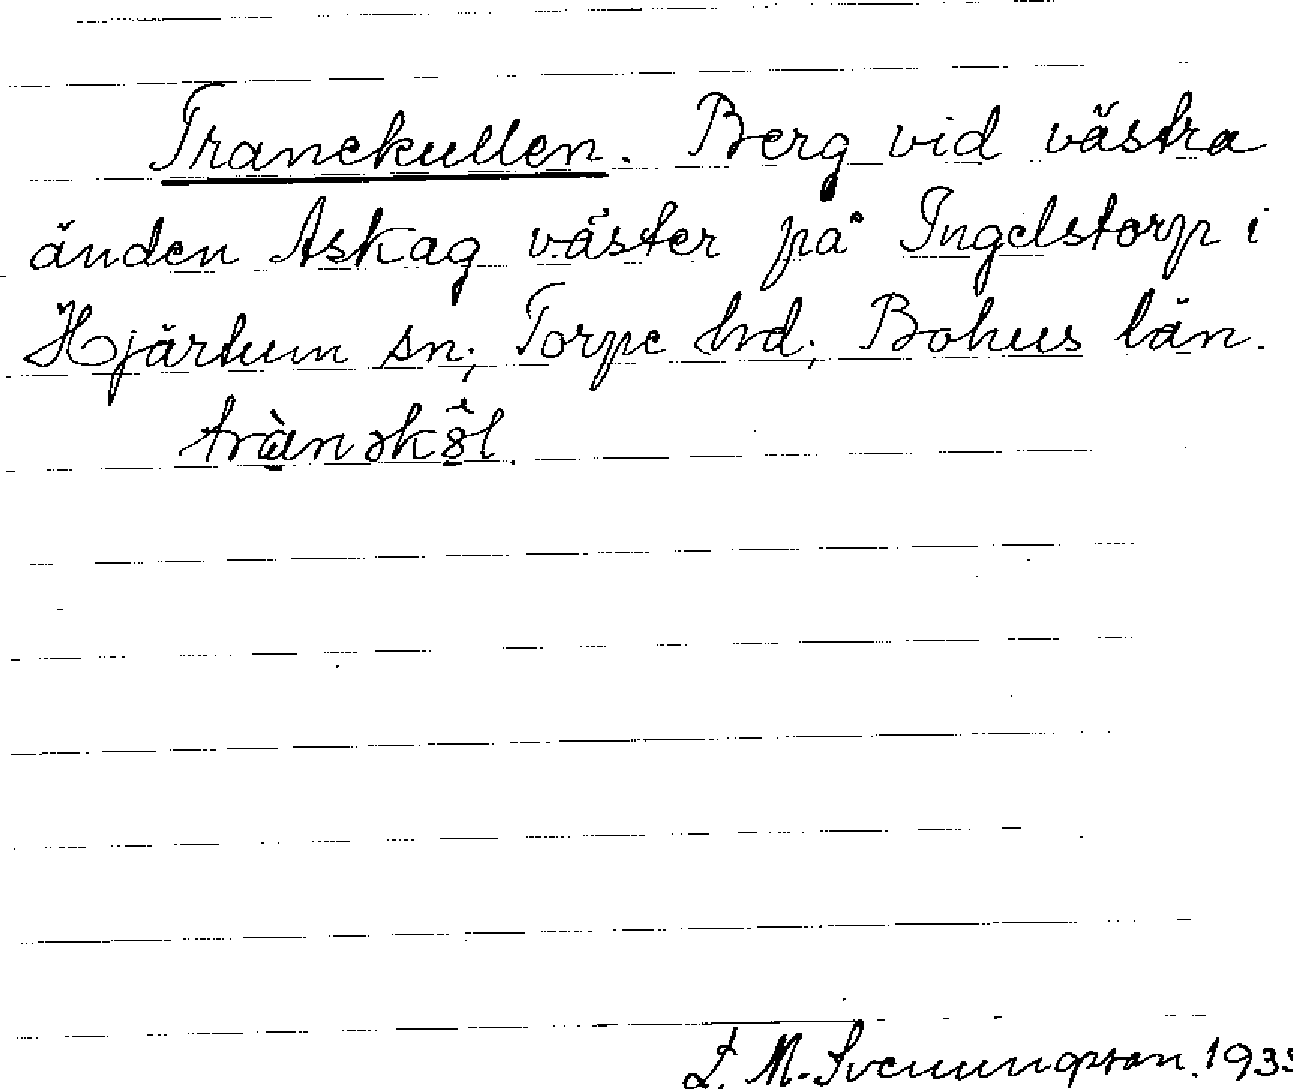 Tranekullen. Berg vid västra
änden Askag väster på Ingelstorp i
Hjärtum sn; Torpe hd; Bohus län.
trànəkəl.
M. Svenungsson. 193